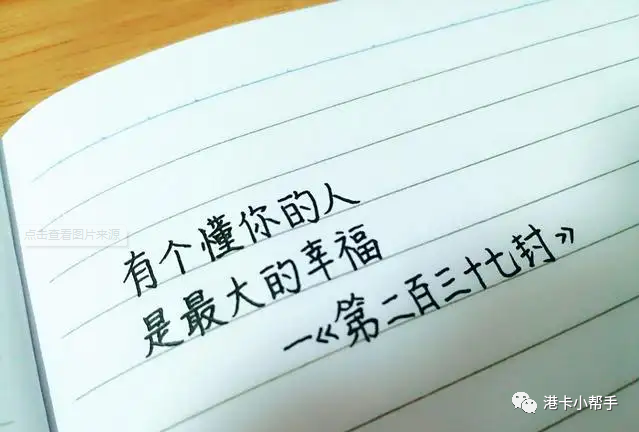 有个懂你的人
是最大的幸福
—《第二百三十七封》
点击查看图片来源
港卡小帮手